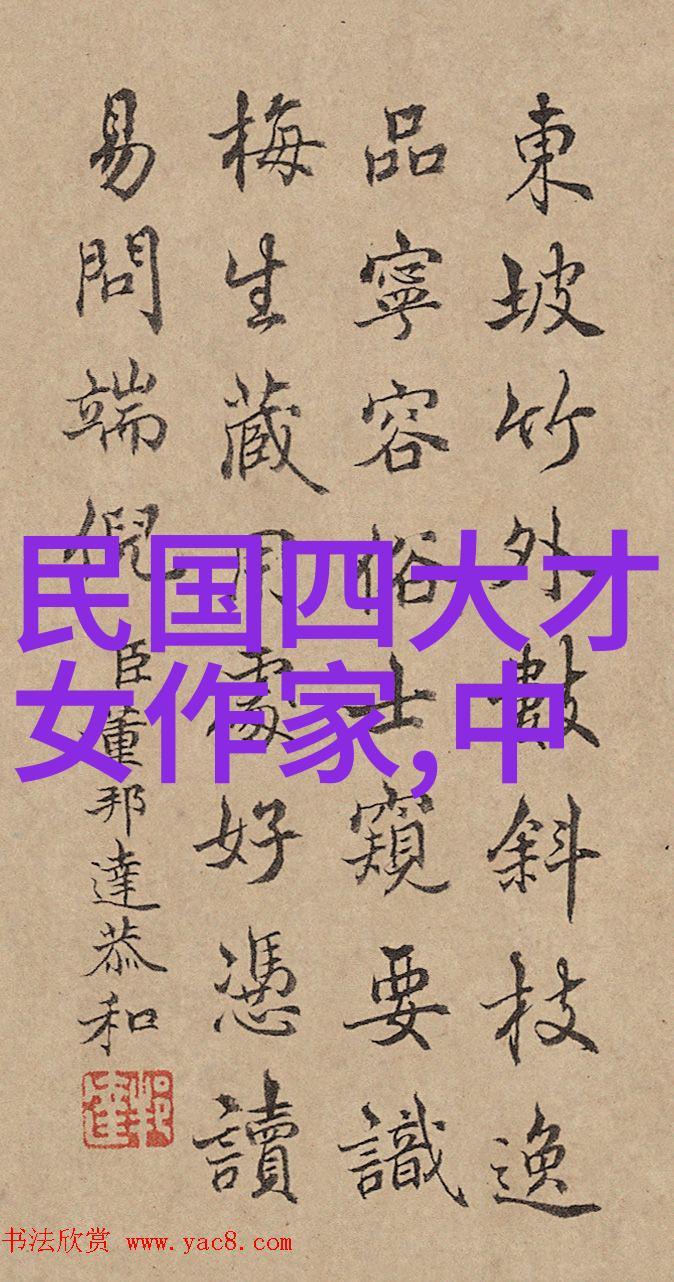 東坡竹外數斜枝逸
品寧容俗士窺要識
梅生藏用處好憑讀
易問端倪臣董邦達恭和
民国四大才
女作家,中
书法欣赏 www.yac8.com